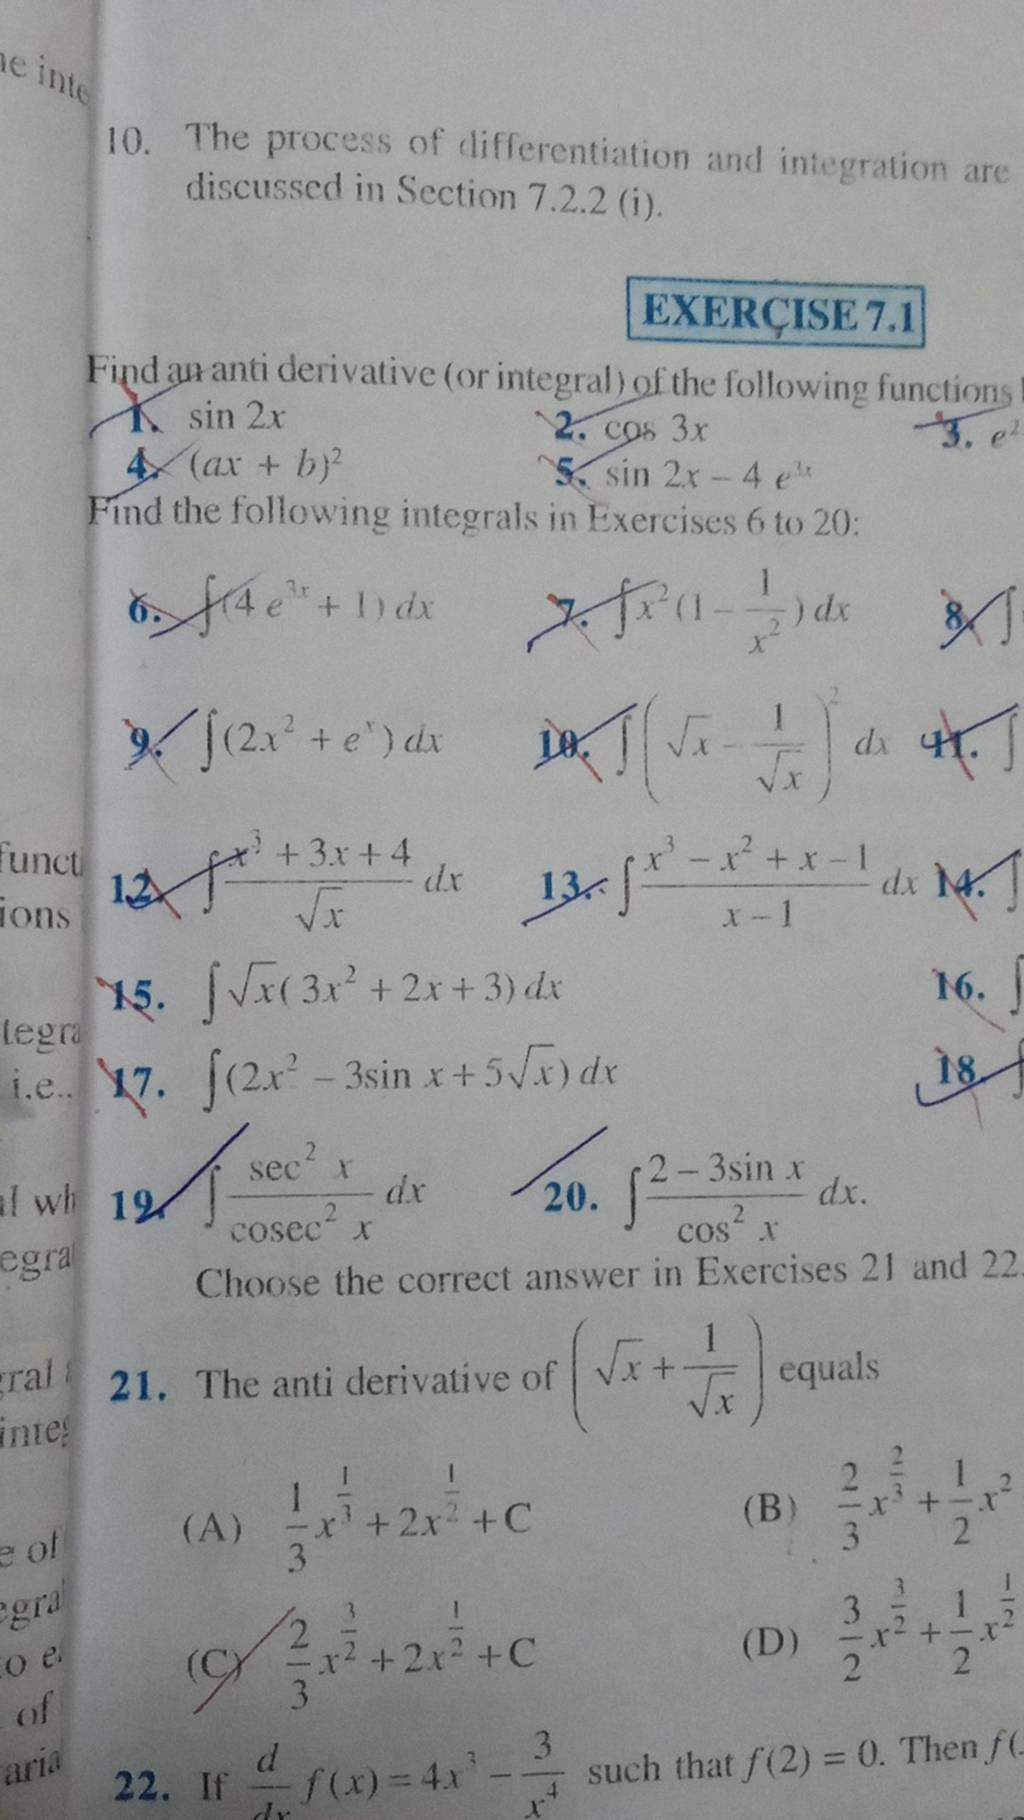 ne inte
10. The process of differentiation and integration are
discussed in Section 7.2.2 (i).
EXERCISE 7.1
Find an anti derivative (or integral) of the following functions
1. sin 2x 2. cos 3x 3. e²
4. (ax + b)² 5. sin 2x – 4 e³ˣ
Find the following integrals in Exercises 6 to 20:
6. ∫(4 e³ˣ + 1) dx 7. ∫x²(1 – 1/x²) dx 8. ∫
9. ∫(2x² + eˣ) dx 10. ∫(√x – 1/√x)² dx 11. ∫
funct
12. ∫(x³ + 3x + 4)/√x dx 13. ∫(x³ – x² + x – 1)/(x – 1) dx 14. ∫
ions
15. ∫√x( 3x² + 2x + 3) dx 16. ∫
tegra
i.e.. 17. ∫(2x² – 3sin x + 5√x) dx 18. ∫
l wh 19. ∫sec² x/cosec² x dx 20. ∫(2 – 3sin x)/cos² x dx.
egra
Choose the correct answer in Exercises 21 and 22.
gral 21. The anti derivative of (√x + 1/√x) equals
integ
(A) 1/3 x^(1/3) + 2x^(1/2) + C (B) 2/3 x^(2/3) + 1/2 x²
e of
egral
(C) 2/3 x^(3/2) + 2x^(1/2) + C (D) 3/2 x^(3/2) + 1/2 x^(1/2)
of
aria
22. If d/dx f(x) = 4x³ – 3/x⁴ such that f(2) = 0. Then f(